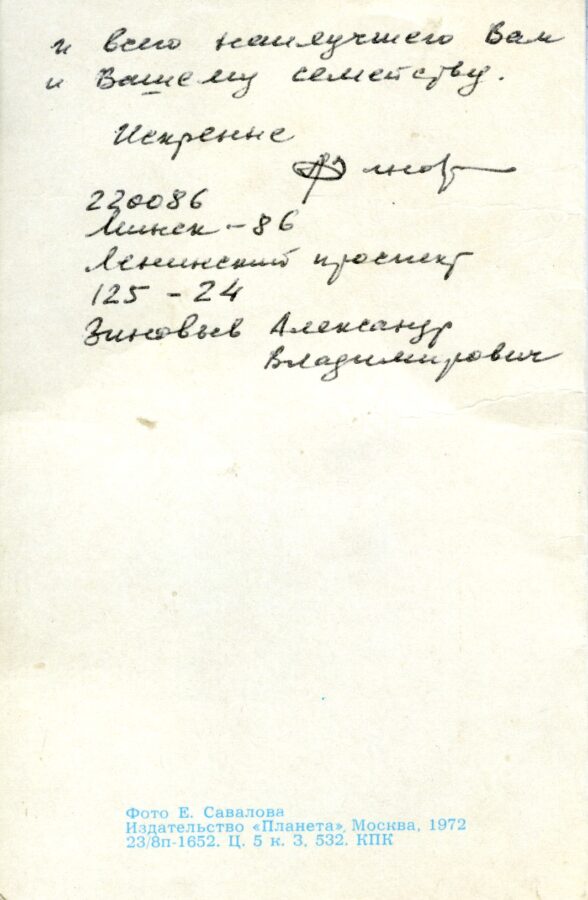 и всего наилучшего Вам
и Вашему семейству.
Искренне
220086
Минск-86
Ленинский проспект
125-24
Зиновьев Александр
Владимирович
Фото Е. Савалова
Издательство «Планета», Москва, 1972
23/8п-1652. Ц. 5 к. З. 532. КПК